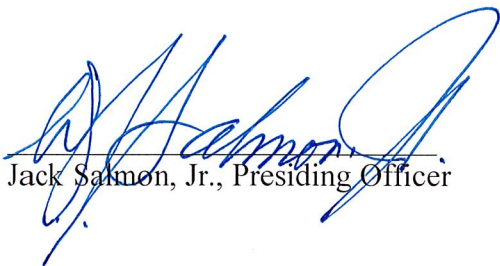 Salmon, Jr.
Jack Salmon, Jr., Presiding Officer